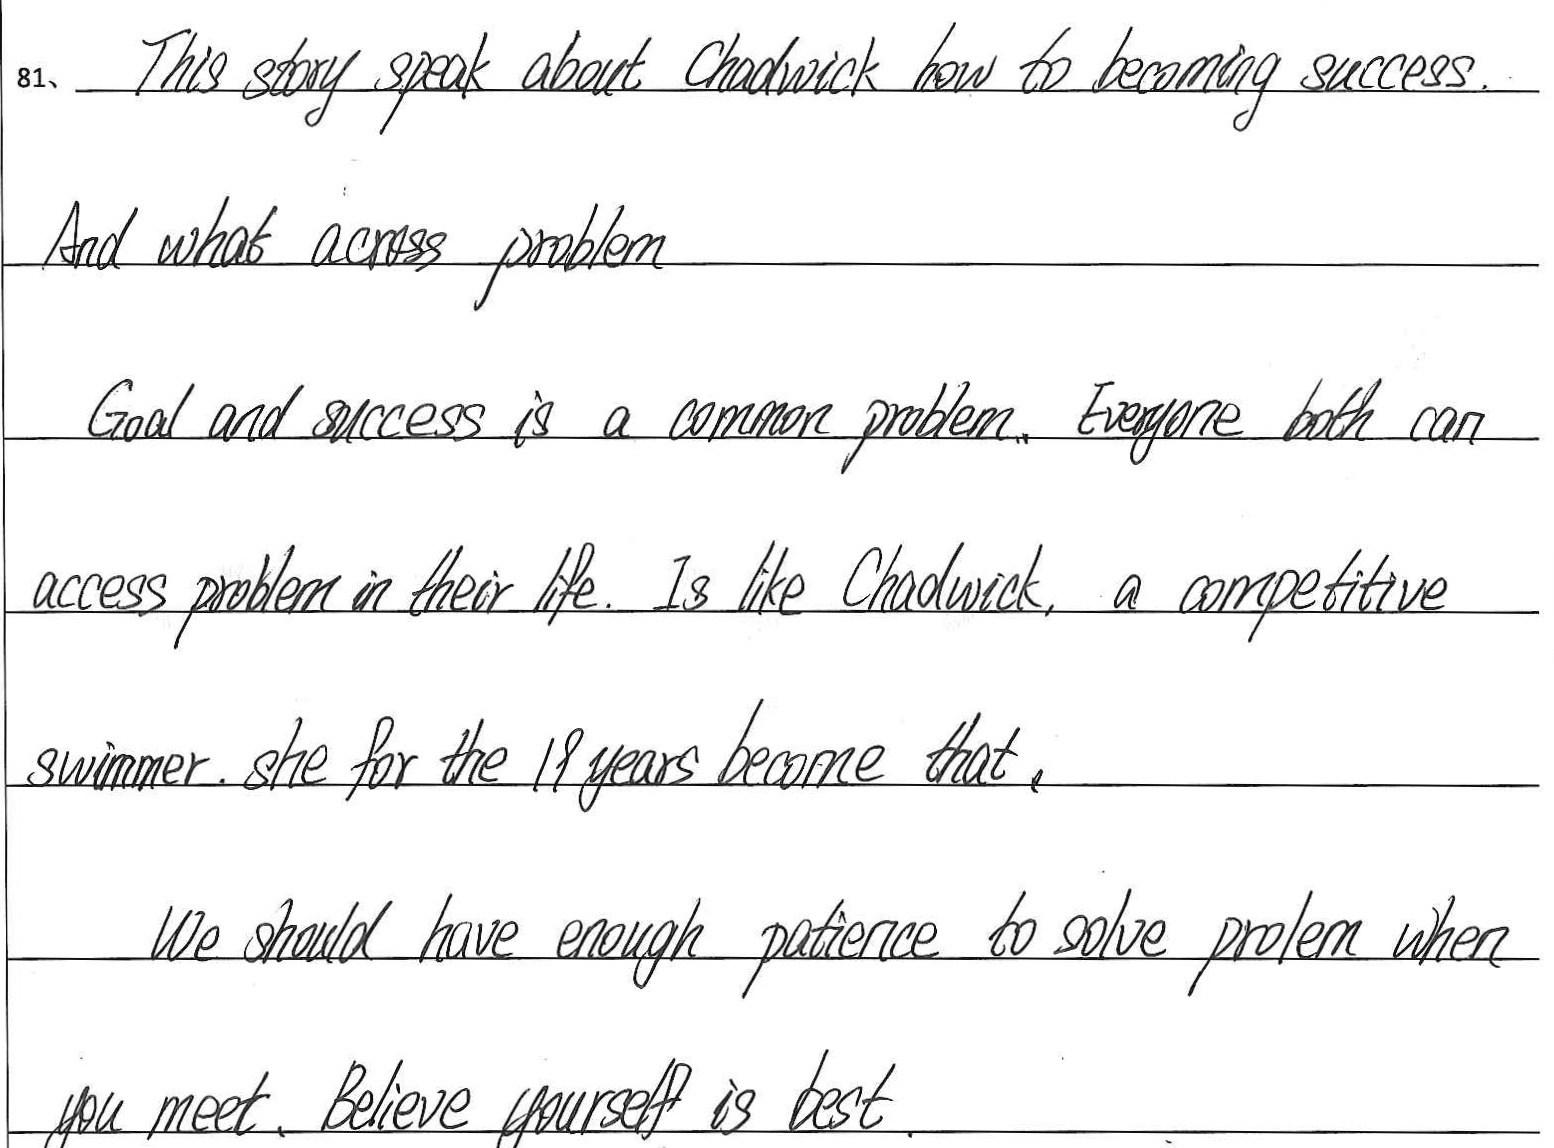 81、 This story speak about Chadwick how to becoming success.
And what across problem
Goal and success is a common problem. Everyone both can
access problem in their life. Is like Chadwick, a competitive
swimmer. she for the 19 years become that.
We should have enough patience to solve prolem when
you meet. Believe yourself is best.